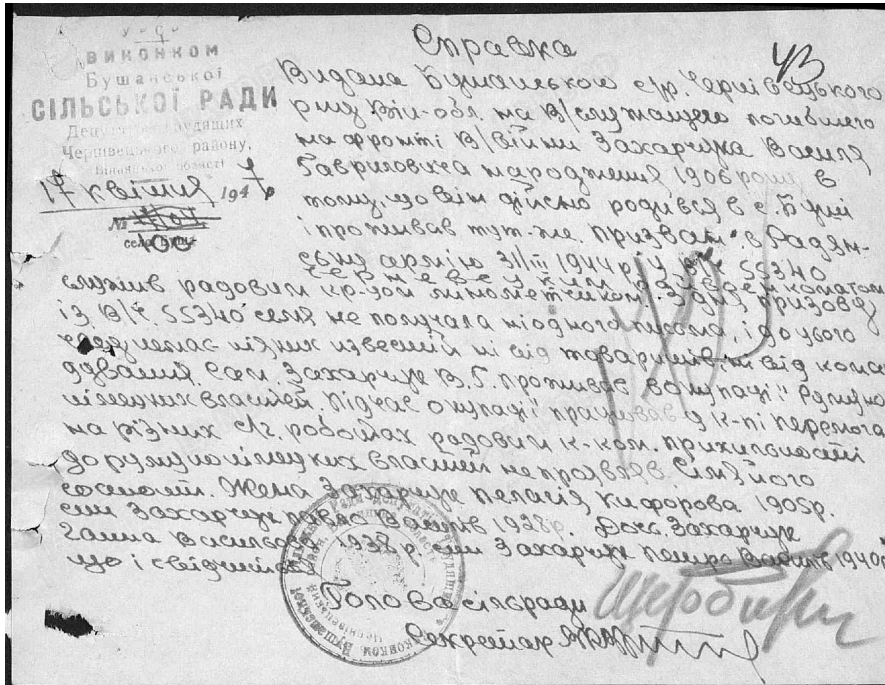 УРСР
ВИКОНКОМ
Бушанської
СІЛЬСЬКОЇ РАДИ
Депутатів Трудящих
Чернівецького району,
Вінницької області
17 квітня 1947
№
село Буша
100
43
Справка
Видана Бушанською с/р. Чернівецького
р-ну Він-обл. на В/служащего погибшего
на фронті В/війни Захарчука Василя
Гавриловича народження 1906 року в
тому, що він дійсно родився в с. Буші
і проживав тут-же. призван в Радян-
ську армію 31/III 1944 р. у В/ч 55340
Чернівецьким военкоматом
служив радовим кр-цом минометчиком. З дня призову
із В/ч. 55340 семя не получала ніодного письма, і до цього
немає ніяких извесцій ні від товаришів ні від коман
дування. Сам. Захарчук В. Г. проживав в окупації Румуно
німецких властей. Підчас окупації працював у к-пі перемога
на різних с/г. роботах радовим к-ком. прихильності
до румуно німецких властей не проявляв. Сімя його
состоіт. Жена Захарчук Пелагія Кифорова 1905р.
син Захарчук Василів 1928р. Доч. Захарчук
Ганна Васильова 1938 р. син Захарчук Петро Василів 1940р
що і свідчить
Голова сільради
Секретар